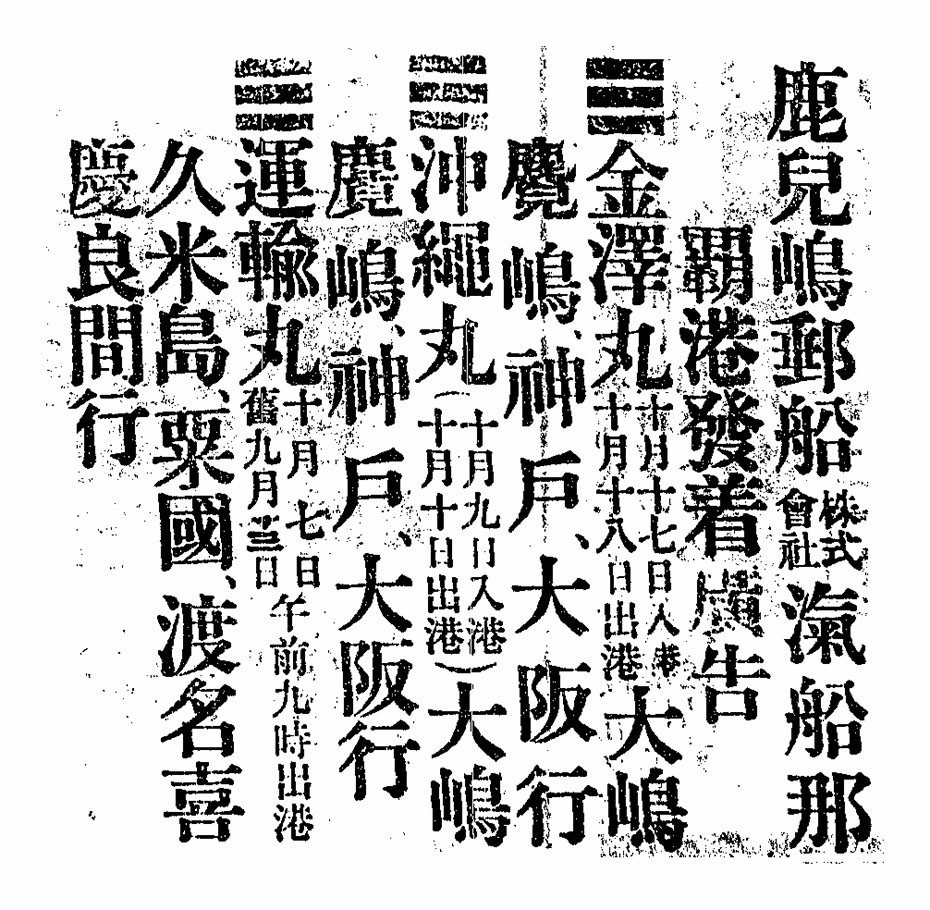 鹿兒嶋郵船株式會社漁船那
覇港發着廣告
☰金澤丸十月十七日入港十月十八日出港大嶋
麑嶋、神戶、大阪行
☰沖繩丸(十月九日入港十月十日出港)大嶋
麑嶋、神戶、大阪行
☰運輸丸十月七日舊九月三日午前九時出港
久米島、粟國、渡名喜
慶良間行